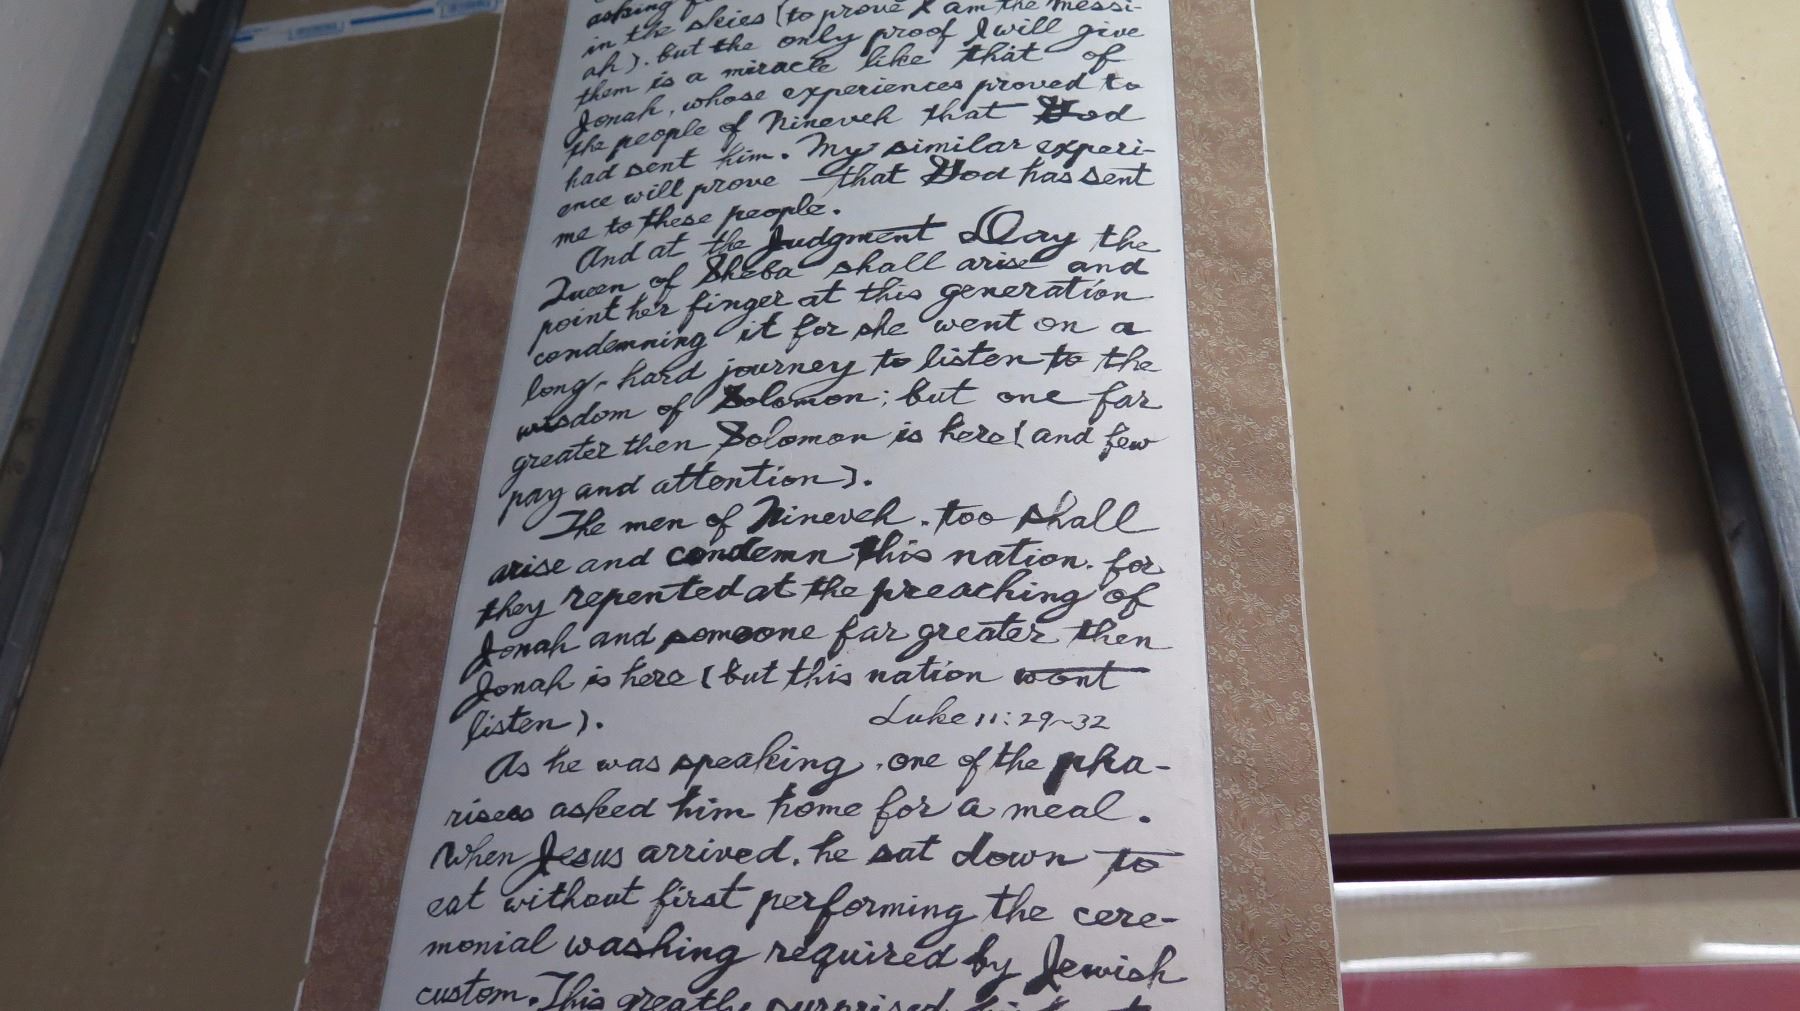 asking
in the skies (to prove I am the Messi-
ah). but the only proof I will give
them is a miracle like that of
Jonah, whose experiences proved to
the people of Nineveh that God
had sent him. My similar experi-
ence will prove that God has sent
me to these people.
And at the Judgment Day the
Queen of Sheba shall arise and
point her finger at this generation
condemning it for she went on a
long, hard journey to listen to the
wisdom of Solomon; but one far
greater then Solomon is here (and few
pay and attention).
The men of Nineveh, too shall
arise and condemn this nation. for
they repented at the preaching of
Jonah and someone far greater then
Jonah is here (but this nation wont
listen).
Luke 11:29~32
As he was speaking, one of the pha-
risees asked him home for a meal.
When Jesus arrived, he sat down to
eat without first performing the cere-
monial washing required by Jewish
custom. This greatly surprised